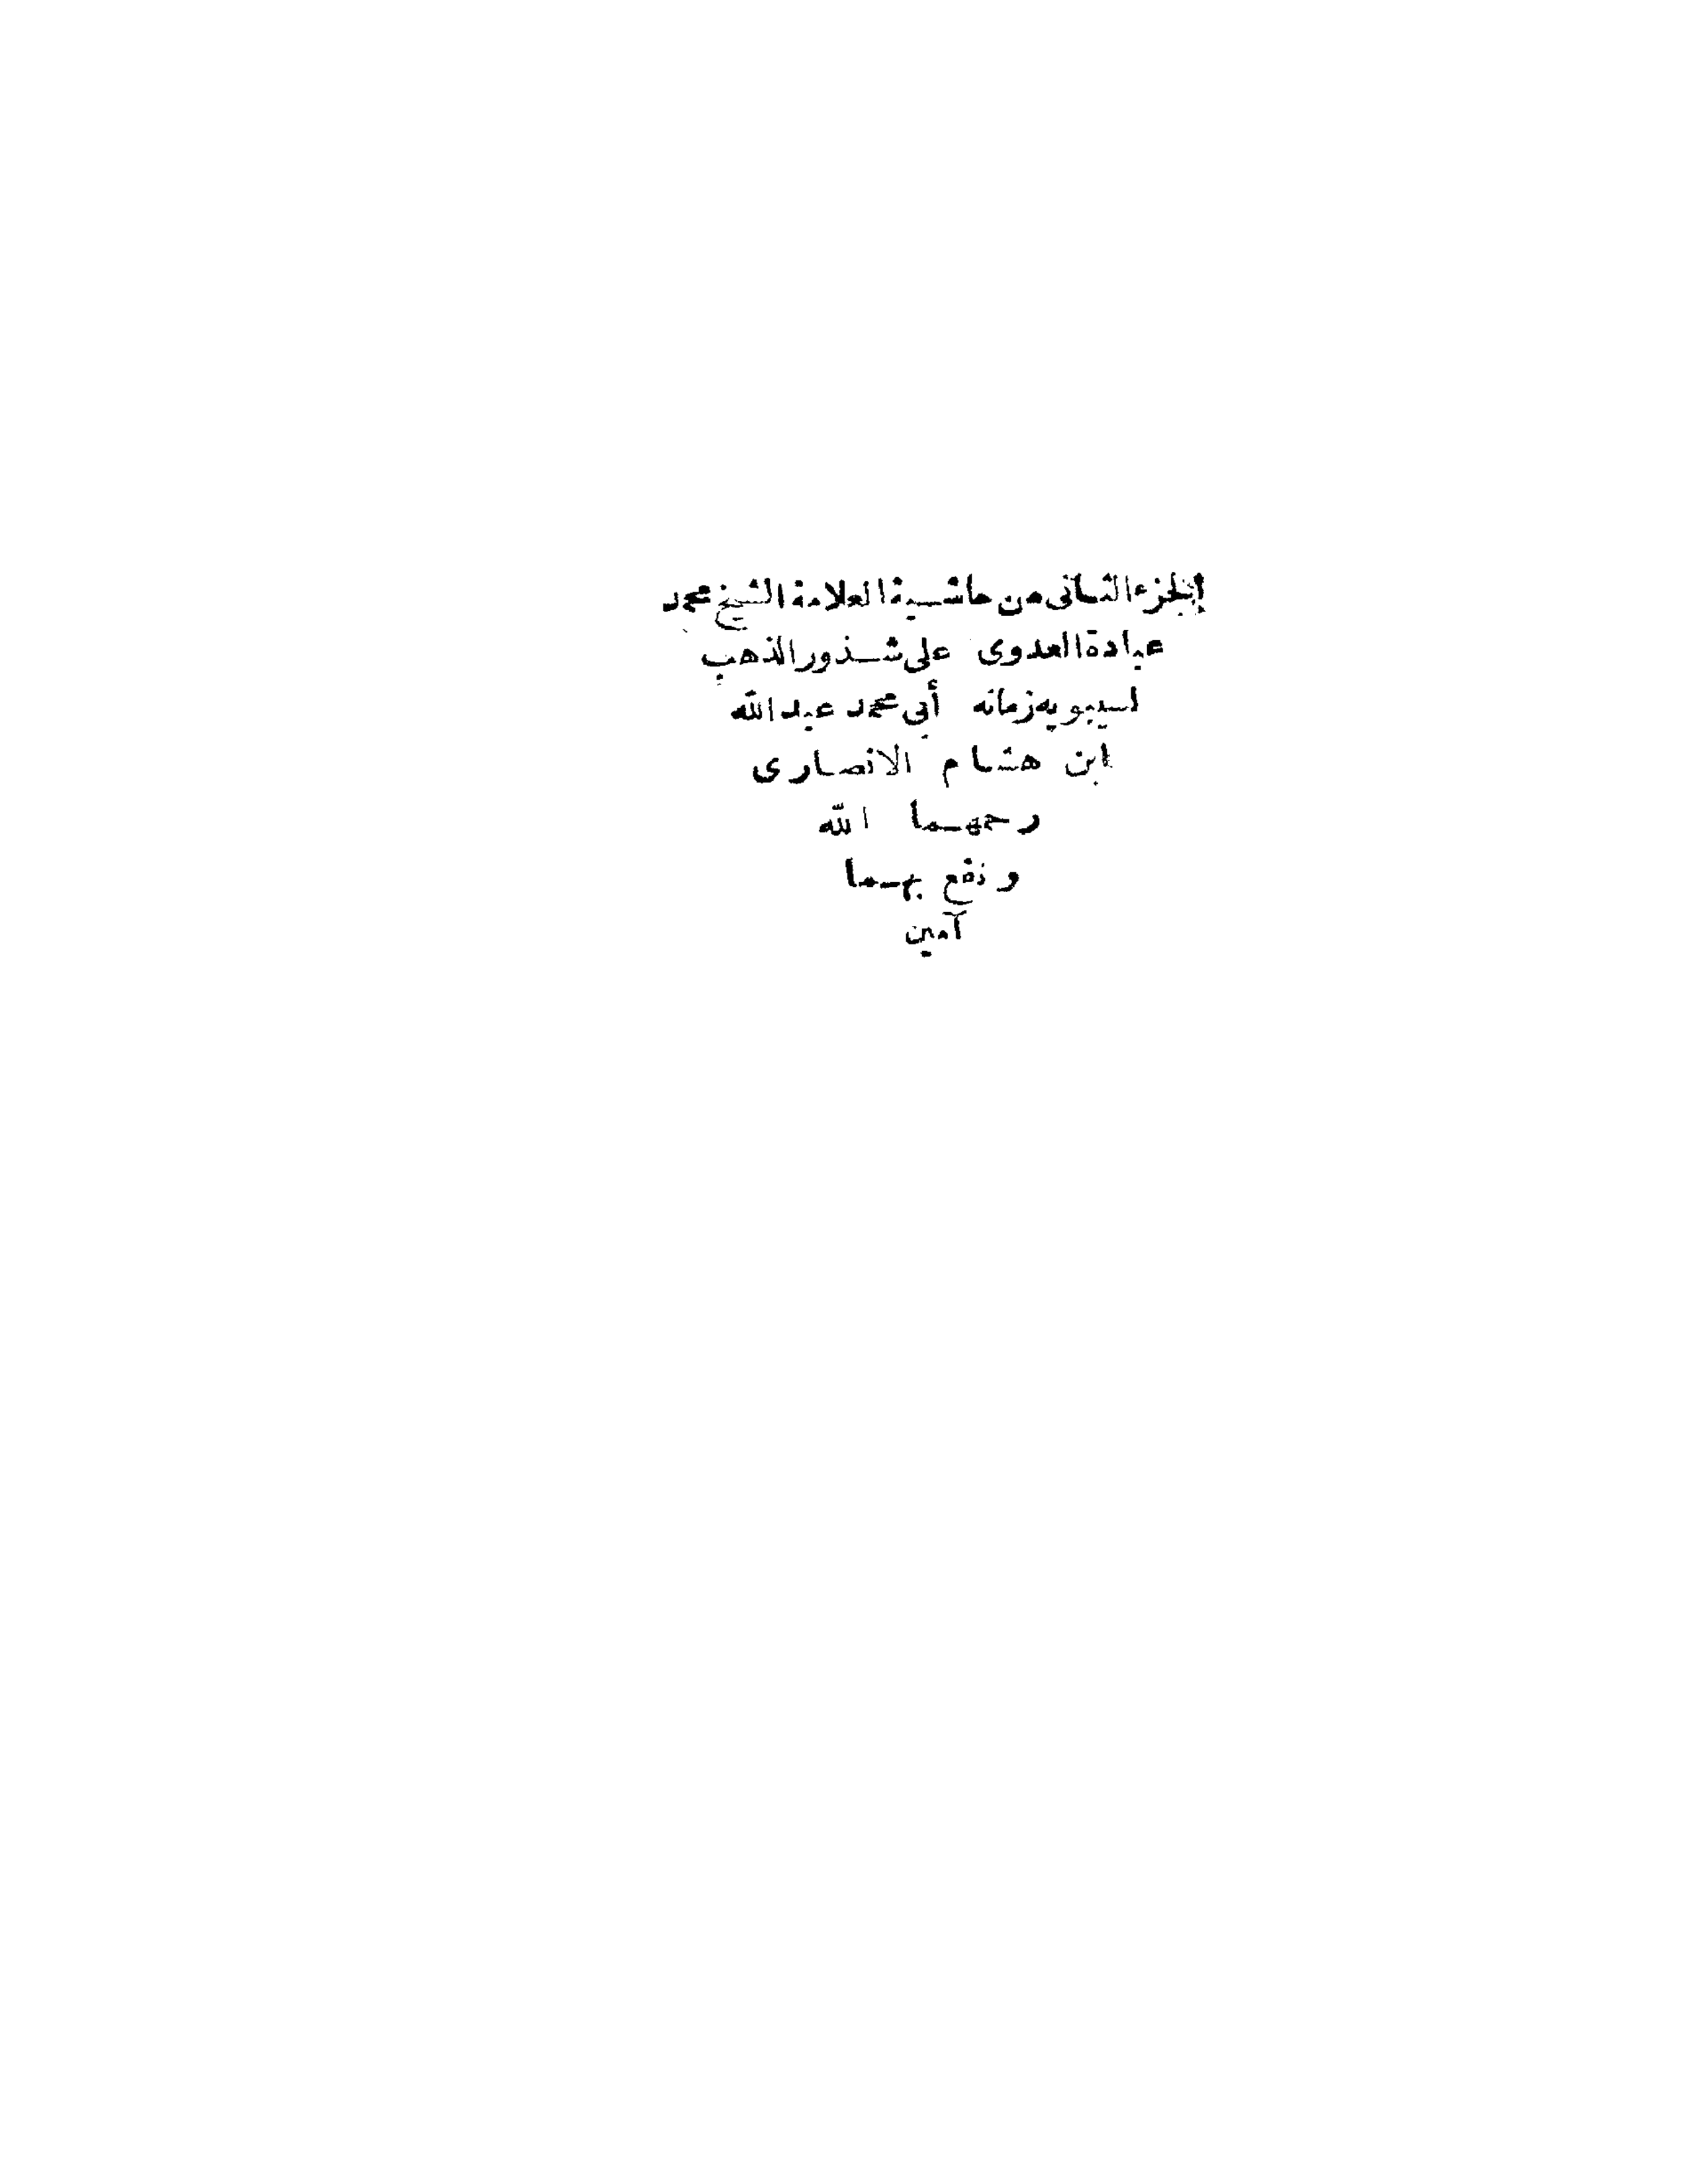 الجزء الثانى من حاشية العلامة الشيخ محمد
عبادة العدوى على شذور الذهب
لسيبويه زمانه أبى محمد عبد الله
ابن هشام الانصارى
رحمهما الله
ونفع بهما
آمين